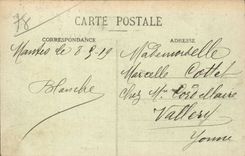 78
CARTE POSTALE
CORRESPONDANCE
ADRESSE
Mantes le 8.9.19
Blanche
Mademoiselle
Marcelle Cottet
Chez Mr
Vallery
Yonne